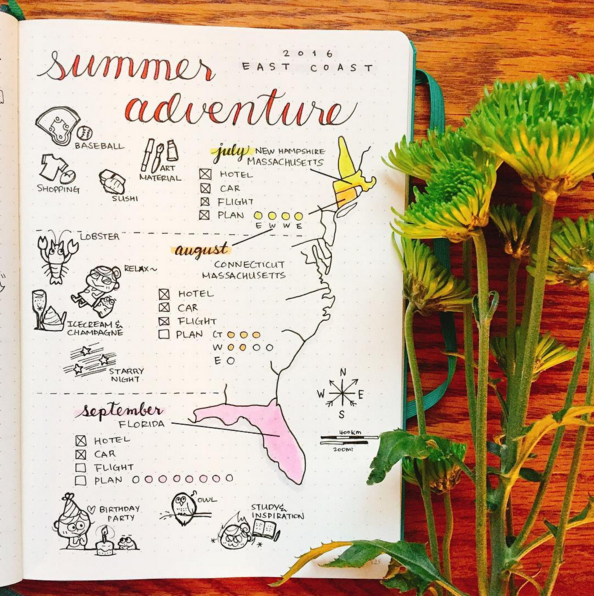 2016
EAST COAST
summer
adventure
BASEBALL
ART
MATERIAL
SHOPPING
SUSHI
july NEW HAMPSHIRE
MASSACHUSETTS
HOTEL
CAR
FLIGHT
PLAN
E W W E
LOBSTER
RELAX~
ICECREAM &
CHAMPAGNE
STARRY
NIGHT
august
CONNECTICUT
MASSACHUSETTS
HOTEL
CAR
FLIGHT
PLAN CT
W
E
N
W E
S
400KM
200MI
september
FLORIDA
HOTEL
CAR
FLIGHT
PLAN
BIRTHDAY
PARTY
OWL
STUDY &
INSPIRATION